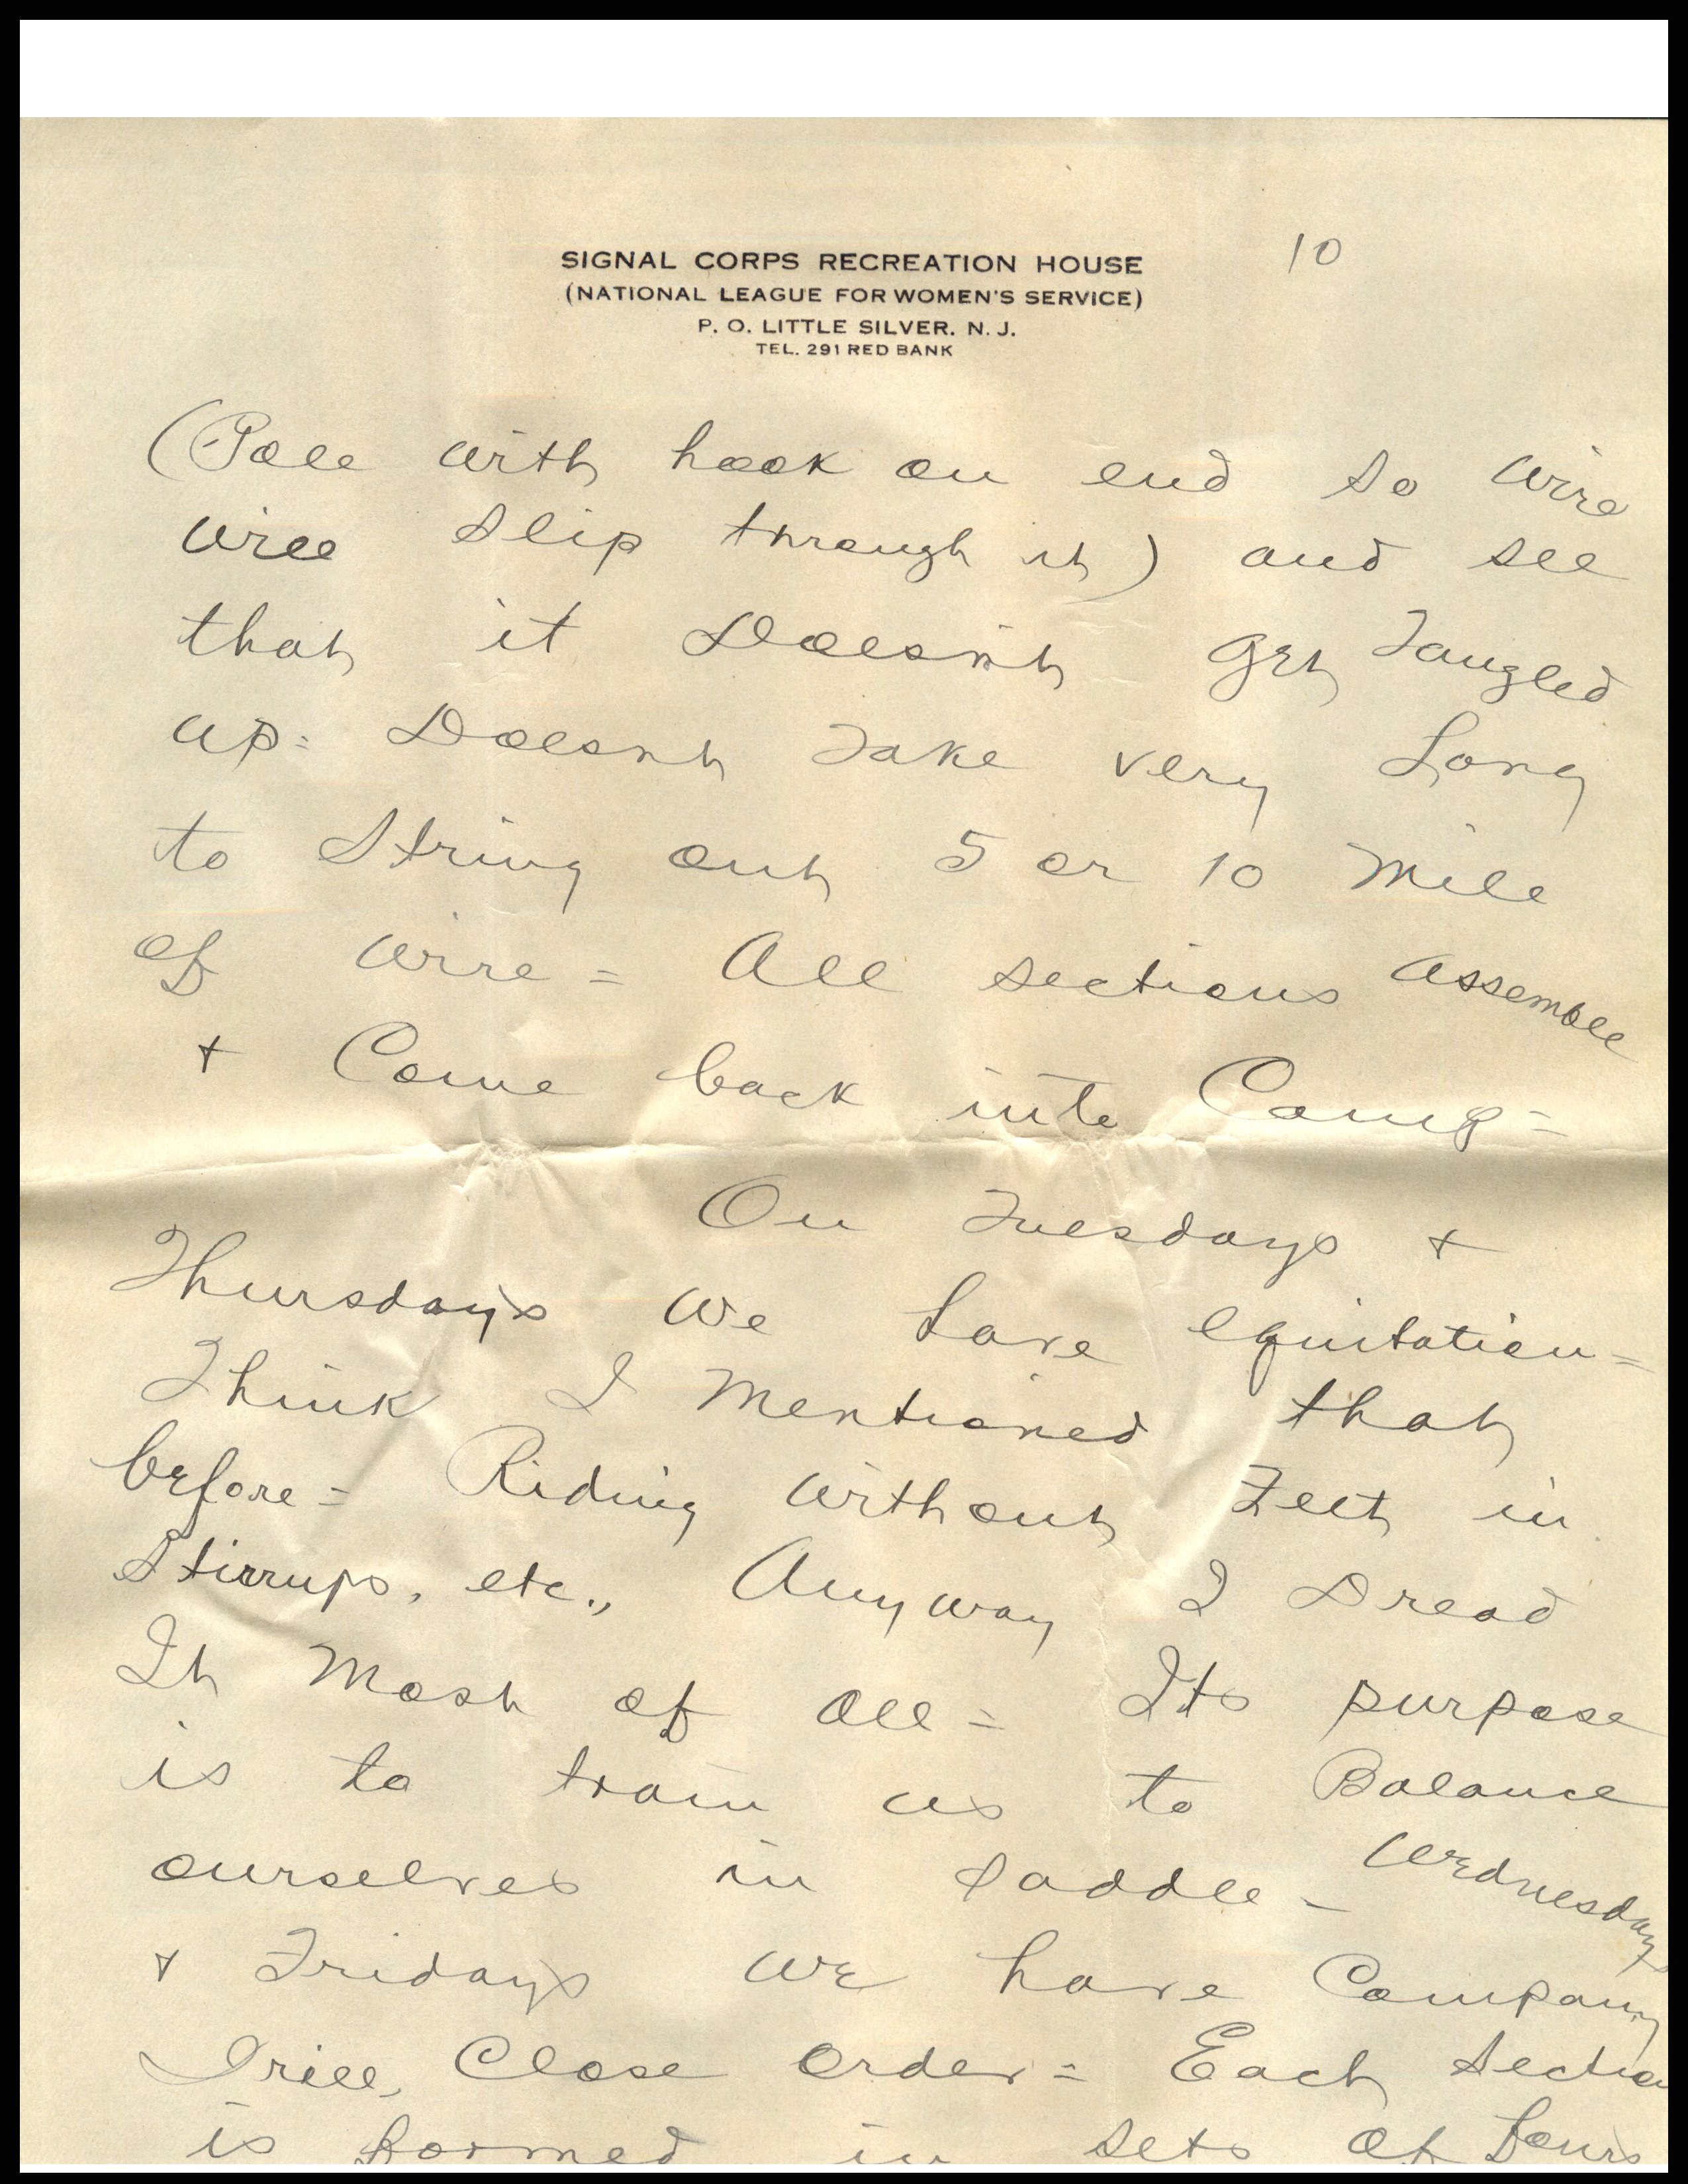 10
SIGNAL CORPS RECREATION HOUSE
(NATIONAL LEAGUE FOR WOMEN'S SERVICE)
P. O. LITTLE SILVER. N. J.
TEL. 291 RED BANK
(Pole with hook on end so wire
will slip through it) and see
that it Doesn't get Tangled
up = Doesnt Take very Long
to String out 5 or 10 mile
of wire = All sections assemble
+ Come back into Camp =
On Tuesdays +
Thursdays we have equitation =
Think I mentioned that
before = Riding without Feet in
Stirrups, etc., Anyway I Dread
It most of all = Its purpose
is to train us to Balance
ourselves in saddle - Wednesdays
+ Fridays we have Company
Drill, Close order = Each Section
is formed in sets of fours